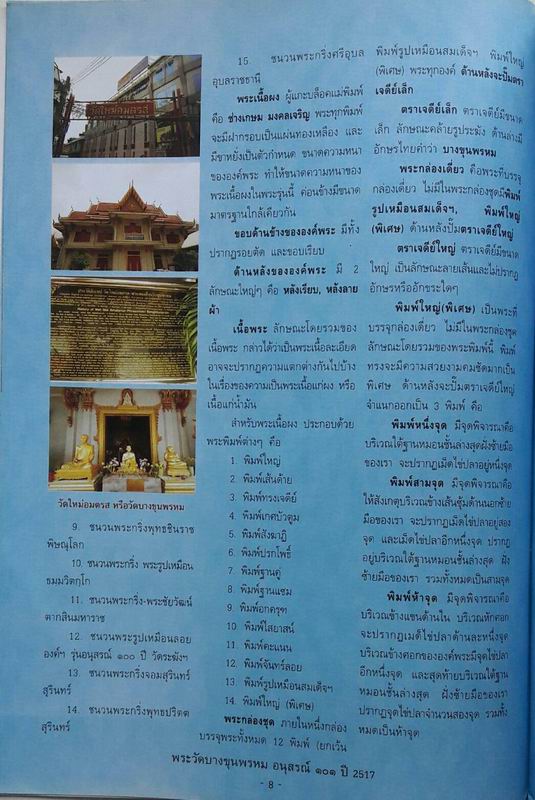 วัดใหม่อมตรส
วัดใหม่อมตรส หรือวัดบางขุนพรหม
9. ชนวนพระกริ่งพุทธชินราช
พิษณุโลก
10. ชนวนพระกริ่ง พระรูปเหมือน
ธมมวิตกฺโก
11. ชนวนพระกริ่ง-พระชัยวัฒน์
ตากสินมหาราช
12. ชนวนพระรูปเหมือนลอย
องค์ฯ รุ่นอนุสรณ์ ๑๐๐ ปี วัดระฆังฯ
13. ชนวนพระกริ่งจอมสุรินทร์
สุรินทร์
14. ชนวนพระกริ่งพุทธปริตต
สุรินทร์
15. ชนวนพระกริ่งศรีอุบล
อุบลราชธานี
พระเนื้อผง ผู้แกะบล็อคแม่พิมพ์
คือ ช่างเกษม มงคลเจริญ พระทุกพิมพ์
จะมีฝากรอบเป็นแผ่นทองเหลือง และ
มีขาหยั่งเป็นตัวกำหนด ขนาดความหนา
ขององค์พระ ทำให้ขนาดความหนาของ
พระเนื้อผงในพระรุ่นนี้ ค่อนข้างมีขนาด
มาตรฐานใกล้เคียงกัน
ขอบด้านข้างขององค์พระ มีทั้ง
ปรากฏรอยตัด และขอบเรียบ
ด้านหลังขององค์พระ มี 2
ลักษณะใหญ่ๆ คือ หลังเรียบ, หลังลาย
ผ้า
เนื้อพระ ลักษณะโดยรวมของ
เนื้อพระ กล่าวได้ว่าเป็นพระเนื้อละเอียด
อาจจะปรากฏความแตกต่างกันไปบ้าง
ในเรื่องของความเป็นพระเนื้อแก่ผง หรือ
เนื้อแก่น้ำมัน
สำหรับพระเนื้อผง ประกอบด้วย
พระพิมพ์ต่างๆ คือ
1. พิมพ์ใหญ่
2. พิมพ์เส้นด้าย
3. พิมพ์ทรงเจดีย์
4. พิมพ์เกศบัวตูม
5. พิมพ์สังฆาฏิ
6. พิมพ์ปรกโพธิ์
7. พิมพ์ฐานคู่
8. พิมพ์ฐานแซม
9. พิมพ์อกครุฑ
10. พิมพ์ไสยาสน์
11. พิมพ์คะแนน
12. พิมพ์จันทร์ลอย
13. พิมพ์รูปเหมือนสมเด็จฯ
14. พิมพ์ใหญ่ (พิเศษ)
พระกล่องชุด ภายในหนึ่งกล่อง
บรรจุพระทั้งหมด 12 พิมพ์ (ยกเว้น
พิมพ์รูปเหมือนสมเด็จฯ พิมพ์ใหญ่
(พิเศษ) พระทุกองค์ ด้านหลังจะปั๊มตรา
เจดีย์เล็ก
ตราเจดีย์เล็ก ตราเจดีย์มีขนาด
เล็ก ลักษณะคล้ายรูประฆัง ด้านล่างมี
อักษรไทยคำว่า บางขุนพรหม
พระกล่องเดี่ยว คือพระที่บรรจุ
กล่องเดี่ยว ไม่มีในพระกล่องชุดมีพิมพ์
รูปเหมือนสมเด็จฯ, พิมพ์ใหญ่
(พิเศษ) ด้านหลังปั๊มตราเจดีย์ใหญ่
ตราเจดีย์ใหญ่ ตราเจดีย์มีขนาด
ใหญ่ เป็นลักษณะลายเส้นและไม่ปรากฏ
อักษรหรืออักขระใดๆ
พิมพ์ใหญ่(พิเศษ) เป็นพระที่
บรรจุกล่องเดี่ยว ไม่มีในพระกล่องชุด
ลักษณะโดยรวมของพระพิมพ์นี้ พิมพ์
ทรงจะมีความสวยงามคมชัดมากเป็น
พิเศษ ด้านหลังจะปั๊มตราเจดีย์ใหญ่
จำแนกออกเป็น 3 พิมพ์ คือ
พิมพ์หนึ่งจุด มีจุดพิจารณาคือ
บริเวณใต้ฐานหมอนชั้นล่างสุดฝั่งซ้ายมือ
ของเรา จะปรากฏเม็ดไข่ปลาอยู่หนึ่งจุด
พิมพ์สามจุด มีจุดพิจารณาคือ
ให้สังเกตุบริเวณข้างเส้นซุ้มด้านนอกซ้าย
มือของเรา จะปรากฏเม็ดไข่ปลาอยู่สอง
จุด และเม็ดไข่ปลาอีกหนึ่งจุด ปรากฏ
อยู่บริเวณใต้ฐานหมอนชั้นล่างสุด ฝั่ง
ซ้ายมือของเรา รวมทั้งหมดเป็นสามจุด
พิมพ์ห้าจุด มีจุดพิจารณาคือ
บริเวณข้างแขนด้านใน บริเวณหักศอก
จะปรากฏเมด์ไข่ปลาด้านละหนึ่งจุด
บริเวณข้างศอกขององค์พระมีจุดไข่ปลา
อีกหนึ่งจุด และสุดท้ายบริเวณใต้ฐาน
หมอนชั้นล่างสุด ฝั่งซ้ายมือของเรา
ปรากฏจุดไข่ปลาจำนวนสองจุด รวมทั้ง
หมดเป็นห้าจุด
พระวัดบางขุนพรหม อนุสรณ์ ๑๐๑ ปี 2517
- 8 -